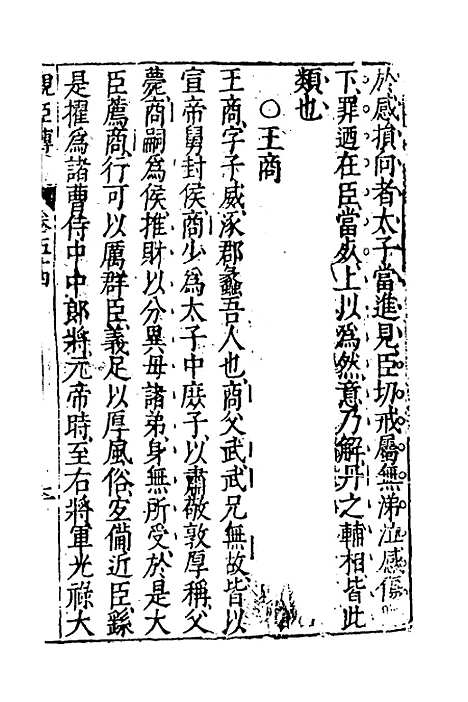 於感損向者太子當進見臣切戒屬無涕泣感傷
下罪迺在臣當死上以爲然意乃解丹之輔相皆此
類也
○王商
王商字子威涿郡蠡吾人也商父武武兄無故皆以
宣帝舅封侯商少爲太子中庶子以肅敬敦厚稱父
薨商嗣爲侯推財以分異母諸弟身無所受於是大
臣薦商行可以厲群臣義足以厚風俗宐備近臣繇
是擢爲諸曹侍中中郎將元帝時至右將軍光祿大
臣傳 卷五十四